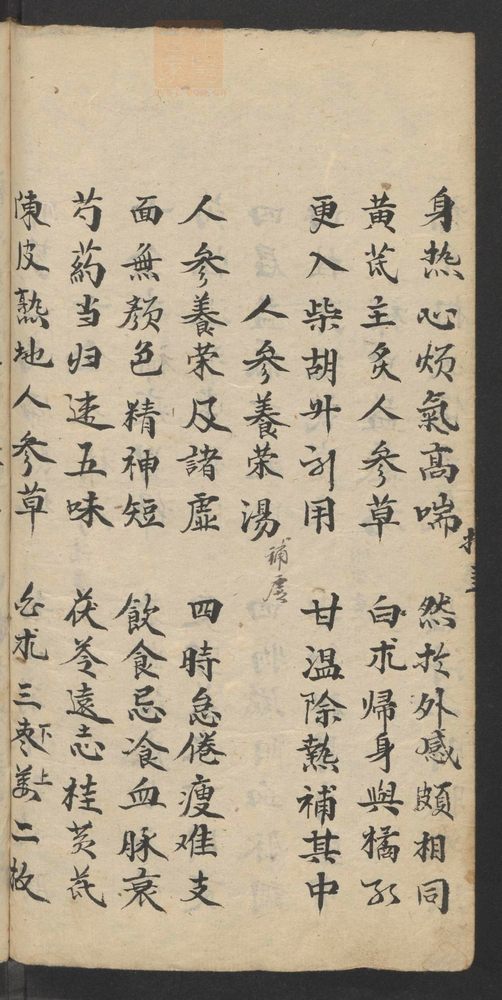 身热心烦氣高喘 然於外感頗相同
黄芪主炙人參草 白朮歸身與橘
更入柴胡升引用 甘温除熱補其中
人參養荣湯 補虚
人參養荣及諸虚 四時怠倦瘦难支
面無顏色精神短 飲食忌飡血脉衰
芍药当归连五味 茯苓遠志桂黄芪
陳皮熟地人參草 白朮三枣下姜上二枚